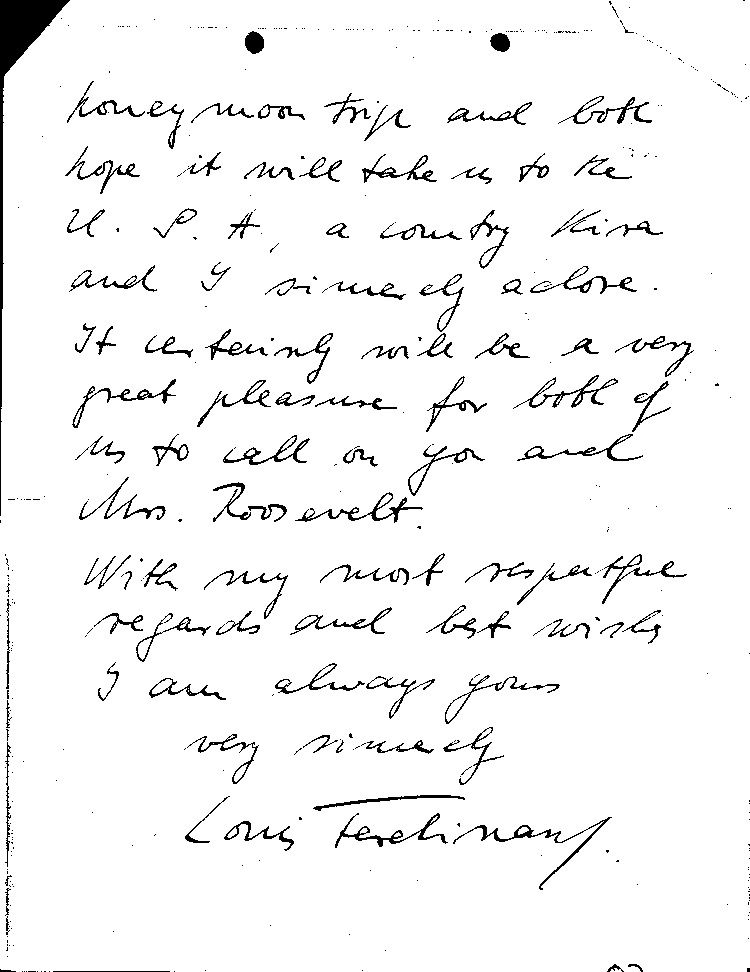 honeymoon trip and both
hope it will take us to the
U. S. A., a country Kira
and I sincerely adore.
It certainly will be a very
great pleasure for both of
us to call on you and
Mrs. Roosevelt.
With my most respectful
regards and best wishes
I am always yours
very sincerely
Louis Ferdinand.